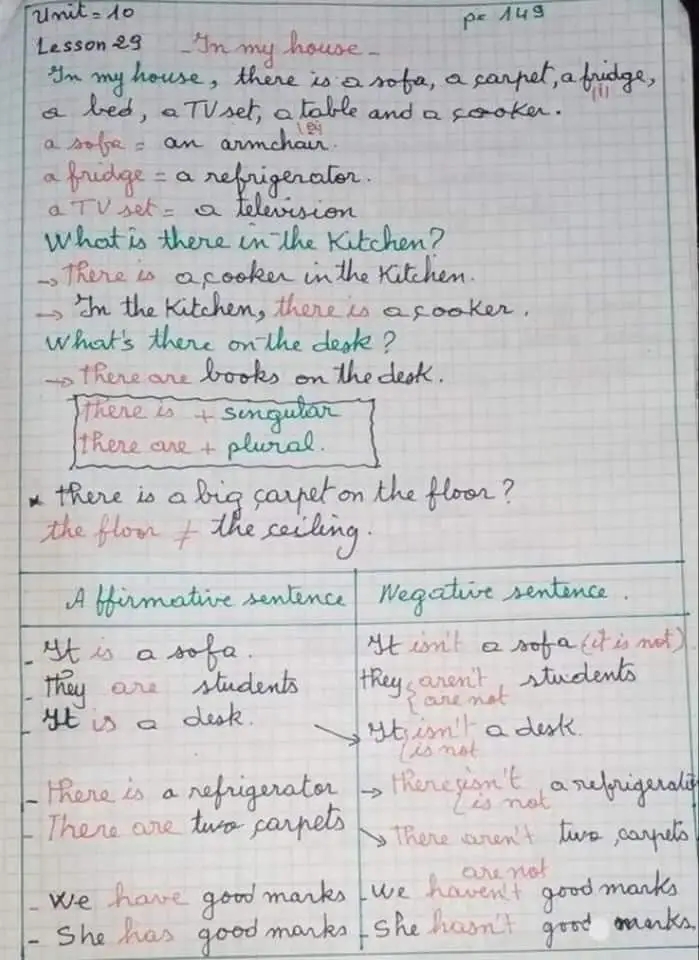 Unit = 10
p: 149
Lesson 29 - In my house -
In my house, there is a sofa, a carpet, a fridge,
(i)
a bed, a TV set, a table and a cooker.
a sofa = an armchair.
a fridge = a refrigerator.
a TV set = a television
What is there in the Kitchen?
→ There is a cooker in the Kitchen.
→ In the Kitchen, there is a cooker.
What's there on the desk?
→ There are books on the desk.
there is + singular
there are + plural.
* there is a big carpet on the floor?
the floor ≠ the ceiling.
Affirmative sentence
- It is a sofa.
- They are students
- It is a desk.
- There is a refrigerator
- There are two carpets
- We have good marks
- She has good marks
Negative sentence.
It isn't a sofa (it is not)
they aren't students
are not
It isn't a desk.
is not
→ there isn't a refrigerator
is not
There aren't two carpets
are not
- We haven't good marks
- She hasn't good marks.